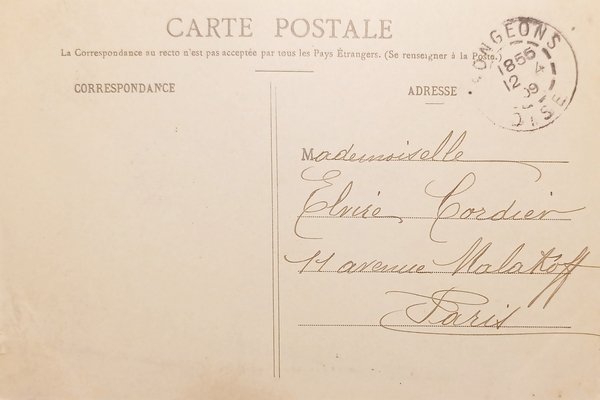 CARTE POSTALE
La Correspondance au recto n'est pas acceptée par tous les Pays Étrangers. (Se renseigner à la Poste.)
CORRESPONDANCE
ADRESSE
SONGEONS
1855
12 4
09
OISE
Mademoiselle
Elvire Cordier
11 avenue Malakoff
Paris